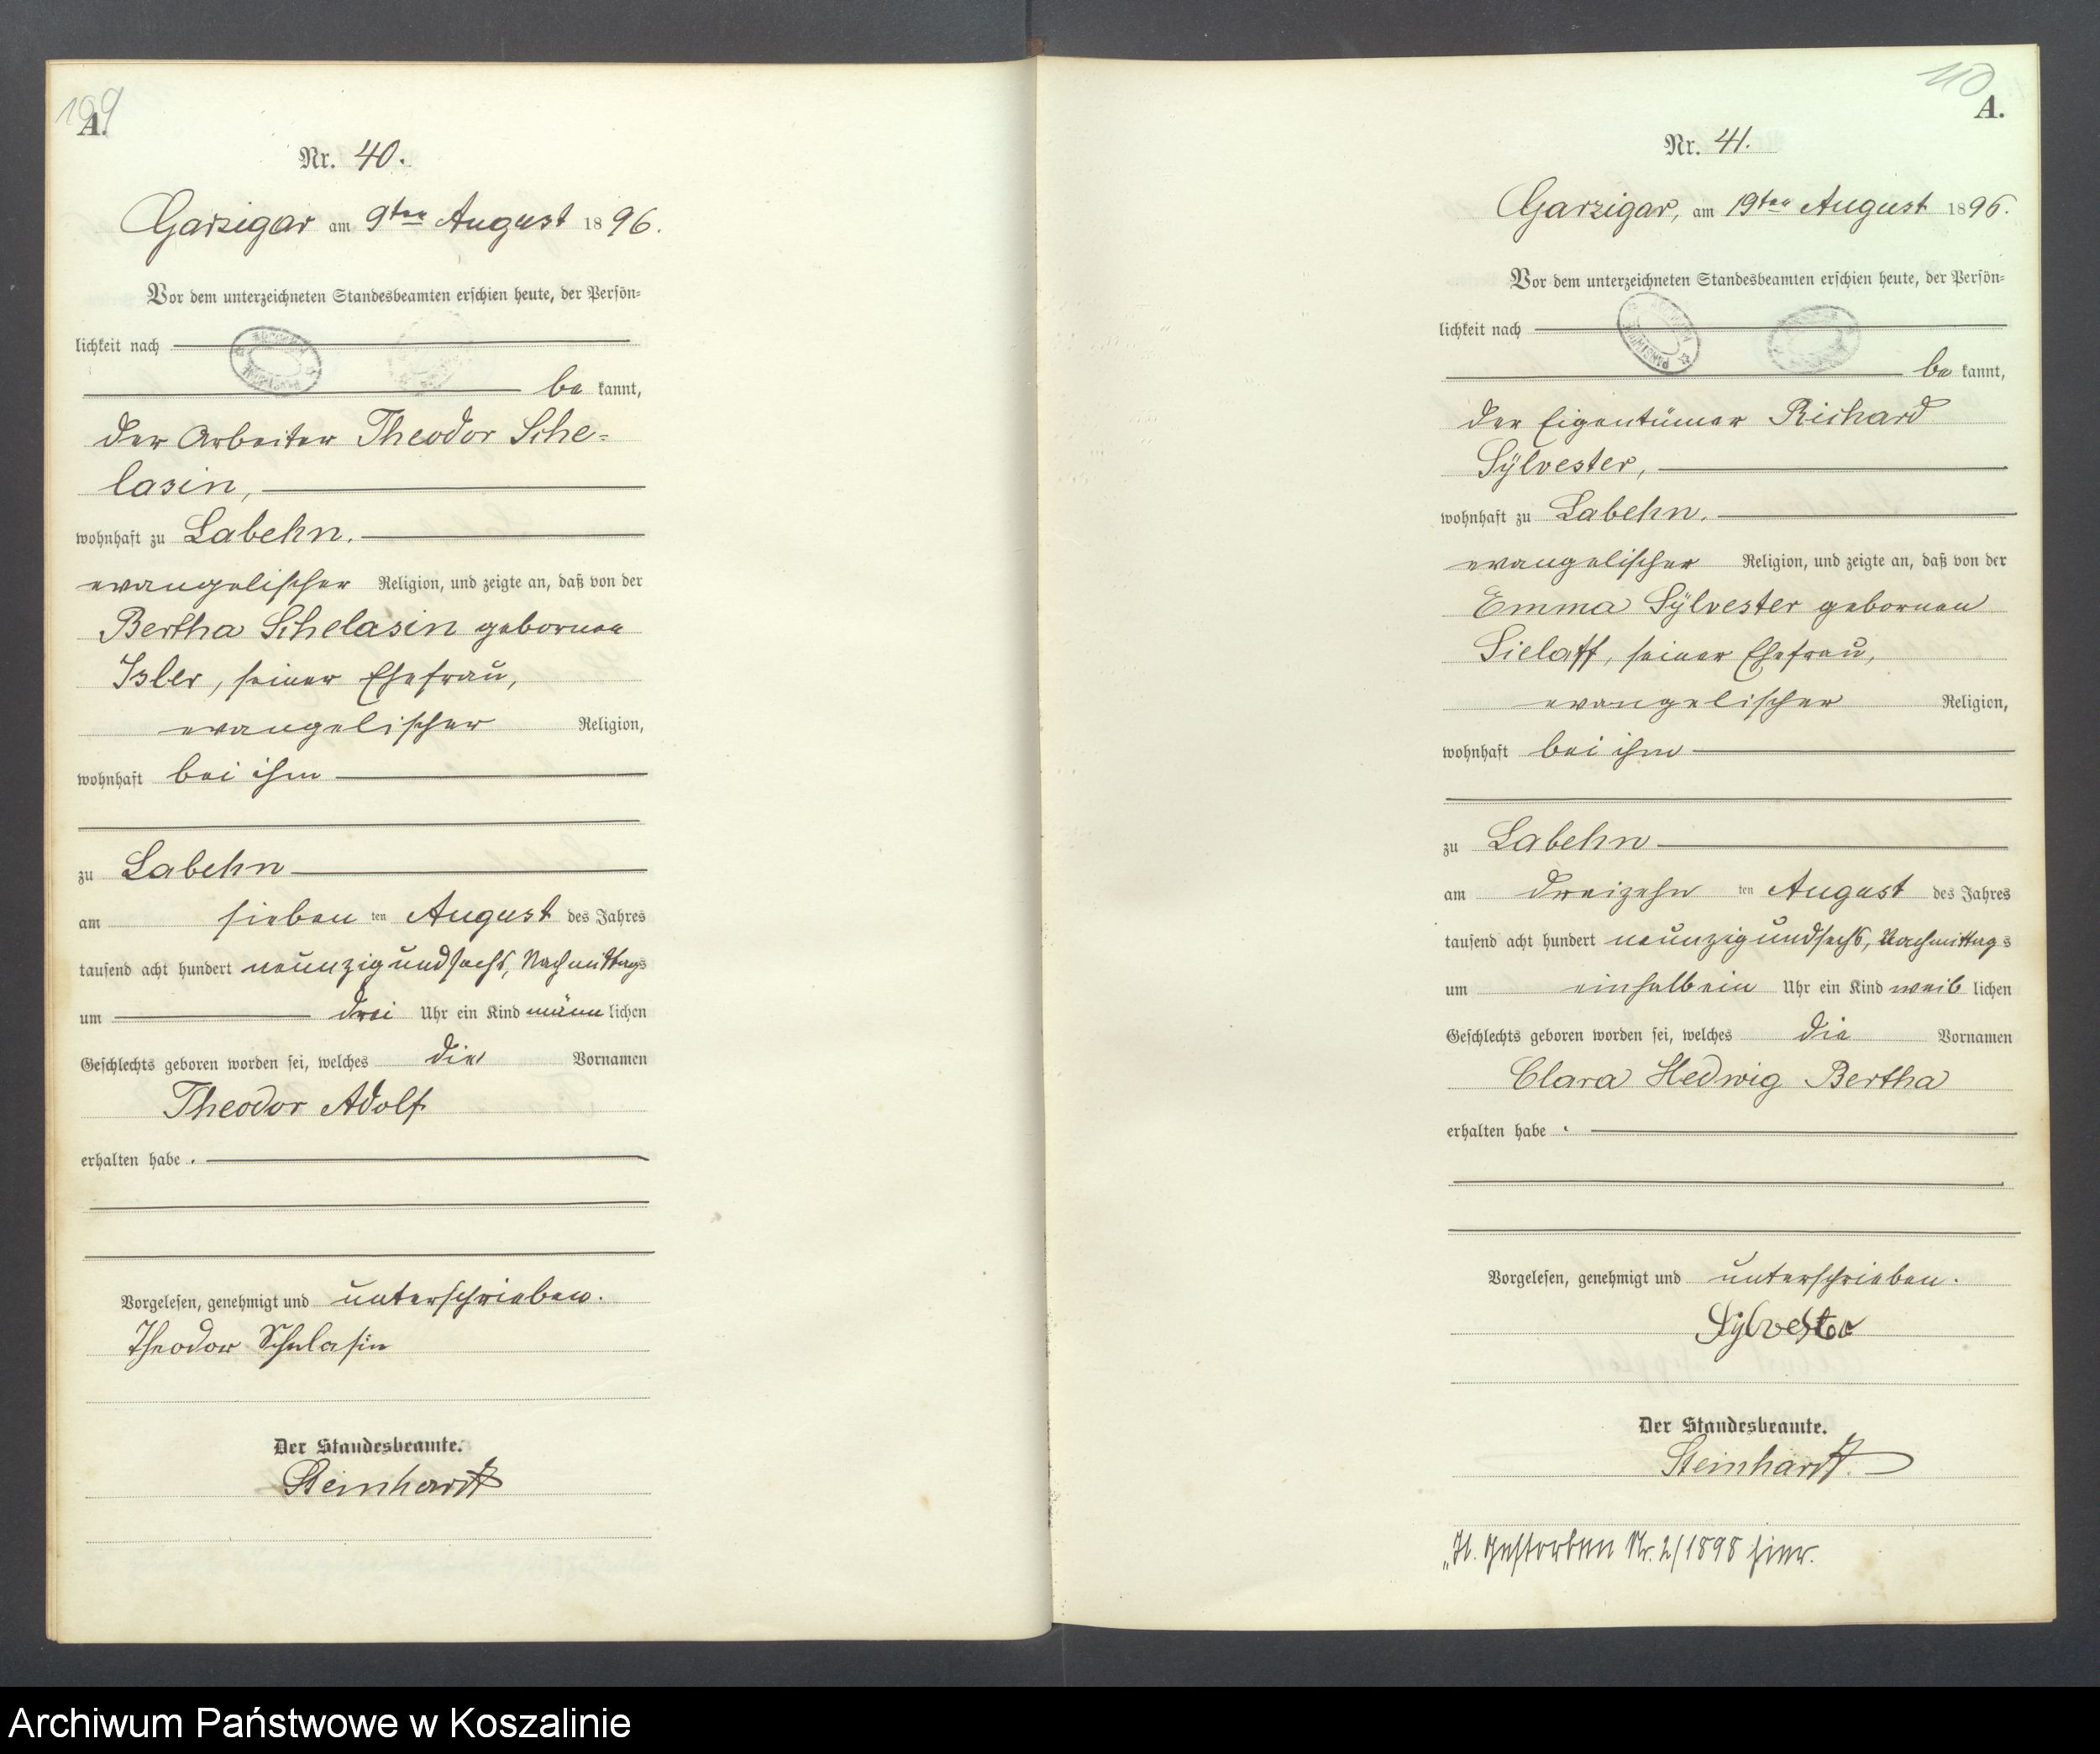 109
A.
Nr. 40.
Garzigar am 9ten August 1896.
Vor dem unterzeichneten Standesbeamten erschien heute, der Persön-
lichkeit nach
be kannt,
der Arbeiter Theodor Sche-
lasin,
wohnhaft zu Labehn.
evangelischer Religion, und zeigte an, daß von der
Bertha Schelasin gebornen
Isler, seiner Ehefrau,
evangelischer Religion,
wohnhaft bei ihm
zu Labehn
am sieben ten August des Jahres
tausend acht hundert neunzigundsechs, Nachmittags
um drei Uhr ein Kind männ lichen
Geschlechts geboren worden sei, welches die Vornamen
Theodor Adolf
erhalten habe.
Vorgelesen, genehmigt und unterschrieben.
Theodor Schelasin
Der Standesbeamte.
Steinhardt
110
A.
Nr. 41.
Garzigar, am 19ten August 1896.
Vor dem unterzeichneten Standesbeamten erschien heute, der Persön-
lichkeit nach
be kannt,
der Eigentümer Richard
Sÿlvester,
wohnhaft zu Labehn.
evangelischer Religion, und zeigte an, daß von der
Emma Sÿlvester gebornen
Sielaff, seiner Ehefrau,
evangelischer Religion,
wohnhaft bei ihm
zu Labehn
am dreizehn ten August des Jahres
tausend acht hundert neunzigundsechs, Nachmittags
um einhalbein Uhr ein Kind weib lichen
Geschlechts geboren worden sei, welches die Vornamen
Clara Hedwig Bertha
erhalten habe.
Vorgelesen, genehmigt und unterschrieben.
Sylvester
Der Standesbeamte.
Steinhardt.
gestorben Nr. 2/1898 hier.
Archiwum Państwowe w Koszalinie